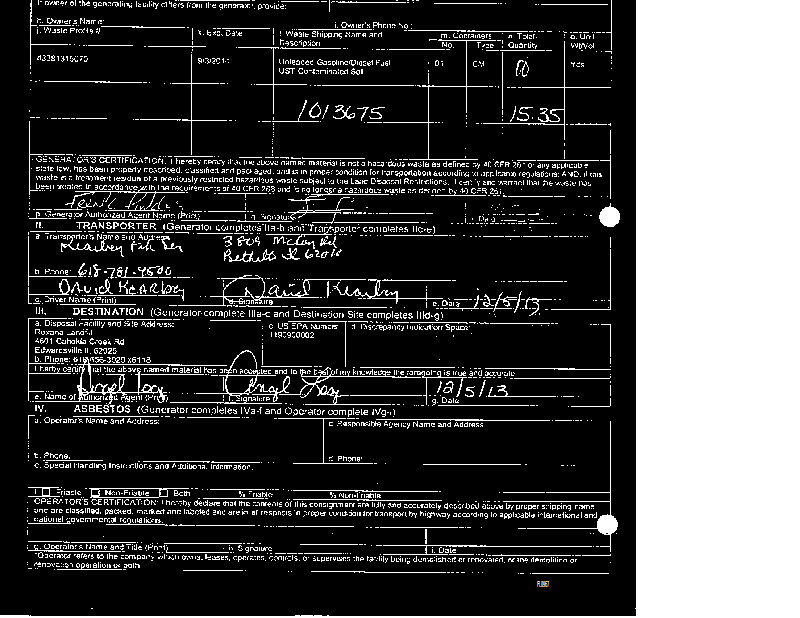 If owner of the generating facility differs from the generator, provide:
h. Owner's Name: i. Owner's Phone No.:
j. Waste Profile # k. Exp. Date l. Waste Shipping Name and Description m. Containers No. Type n. Total Quantity o. Unit Wt/Vol
9/3/2014 Unleaded Gasoline/Diesel Fuel UST Contaminated Soil 01 CM Yes
1013675 15.35
GENERATOR'S CERTIFICATION: I hereby certify that the above named material is not a hazardous waste as defined by 40 CFR 261 or any applicable
state law, has been properly described, classified and packaged, and is in proper condition for transportation according to applicable regulations; AND, if this
waste is a treatment residue of a previously restricted hazardous waste subject to the Land Disposal Restrictions, I certify and warrant that the waste has
been treated in accordance with the requirements of 40 CFR 268 and is no longer a hazardous waste as defined by 40 CFR 261.
p. Generator Authorized Agent Name (Print) q. Signature r. Date
II. TRANSPORTER (Generator completes IIa-b and Transporter completes IIc-e)
a. Transporter's Name and Address: 3809 McCoy Rd
Kearbey Bethalto IL 62010
b. Phone: 618-781-9500
David Kearbey David Kearbey 12/5/13
c. Driver Name (Print) d. Signature e. Date
III. DESTINATION (Generator complete IIIa-c and Destination Site completes IIId-g)
a. Disposal Facility and Site Address: c. US EPA Number d. Discrepancy Indication Space:
Roxana Landfill
4601 Cahokia Creek Rd
Edwardsville IL 62025
b. Phone:
I hereby certify that the above named material has been accepted and to the best of my knowledge the foregoing is true and accurate
Angel Angel 12/5/13
e. Name of Authorized Agent (Print) f. Signature g. Date
IV. ASBESTOS (Generator completes IVa-f and Operator complete IVg-i)
a. Operator's Name and Address: c. Responsible Agency Name and Address
b. Phone: d. Phone:
e. Special Handling Instructions and Additional Information:
f. Friable Non-Friable Both % Friable % Non-Friable
OPERATOR'S CERTIFICATION: I hereby declare that the contents of this consignment are fully and accurately described above by proper shipping name
and are classified, packed, marked and labeled and are in all respects in proper condition for transport by highway according to applicable international and
national governmental regulations.
g. Operator's Name and Title (Print) h. Signature i. Date
*Operator refers to the company which owns, leases, operates, controls, or supervises the facility being demolished or renovated, or the demolition or
renovation operation or both